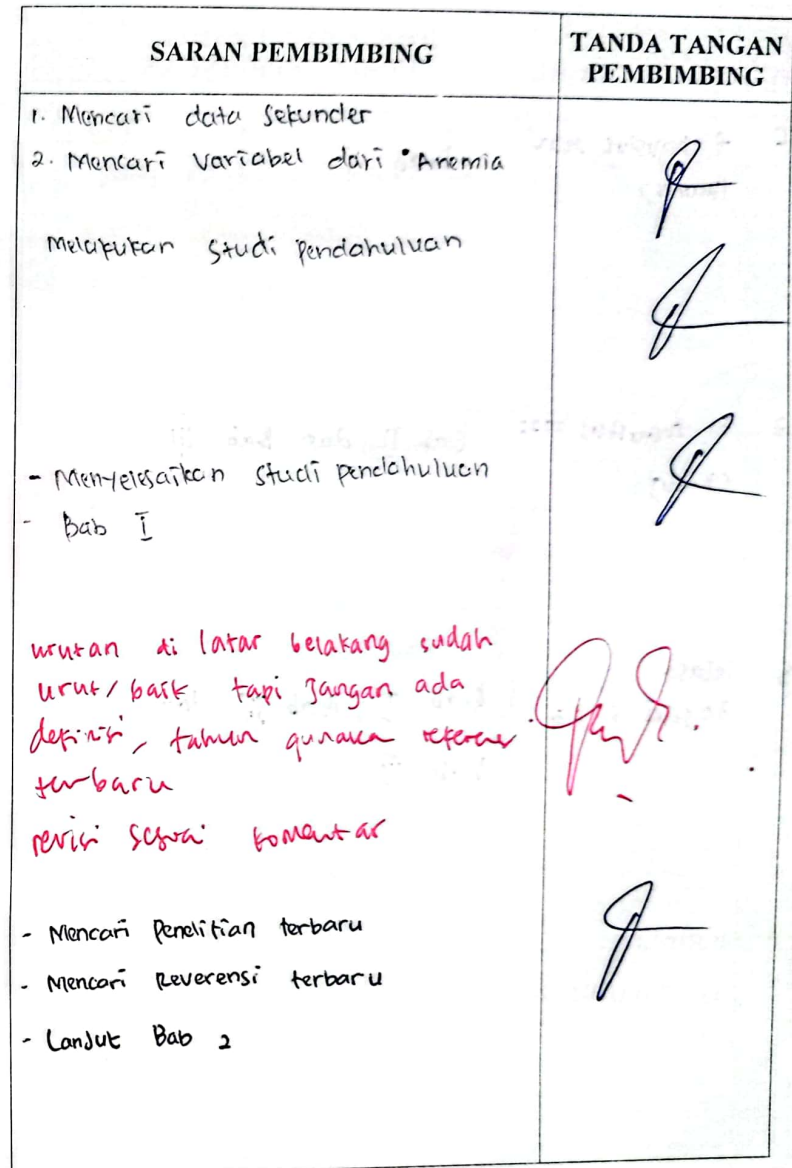 SARAN PEMBIMBING
TANDA TANGAN
PEMBIMBING
1. Mencari data Sekunder
2. Mencari Variabel dari Anemia
Melakukan Studi Pendahuluan
- Menyelesaikan Studi pendahuluan
- Bab I
urutan di latar belakang sudah
urut/baik tapi Jangan ada
definisi, tahun gunakan referensi
terbaru
revisi sesuai komentar
- Mencari Penelitian terbaru
- Mencari Reverensi terbaru
- Lanjut Bab 2